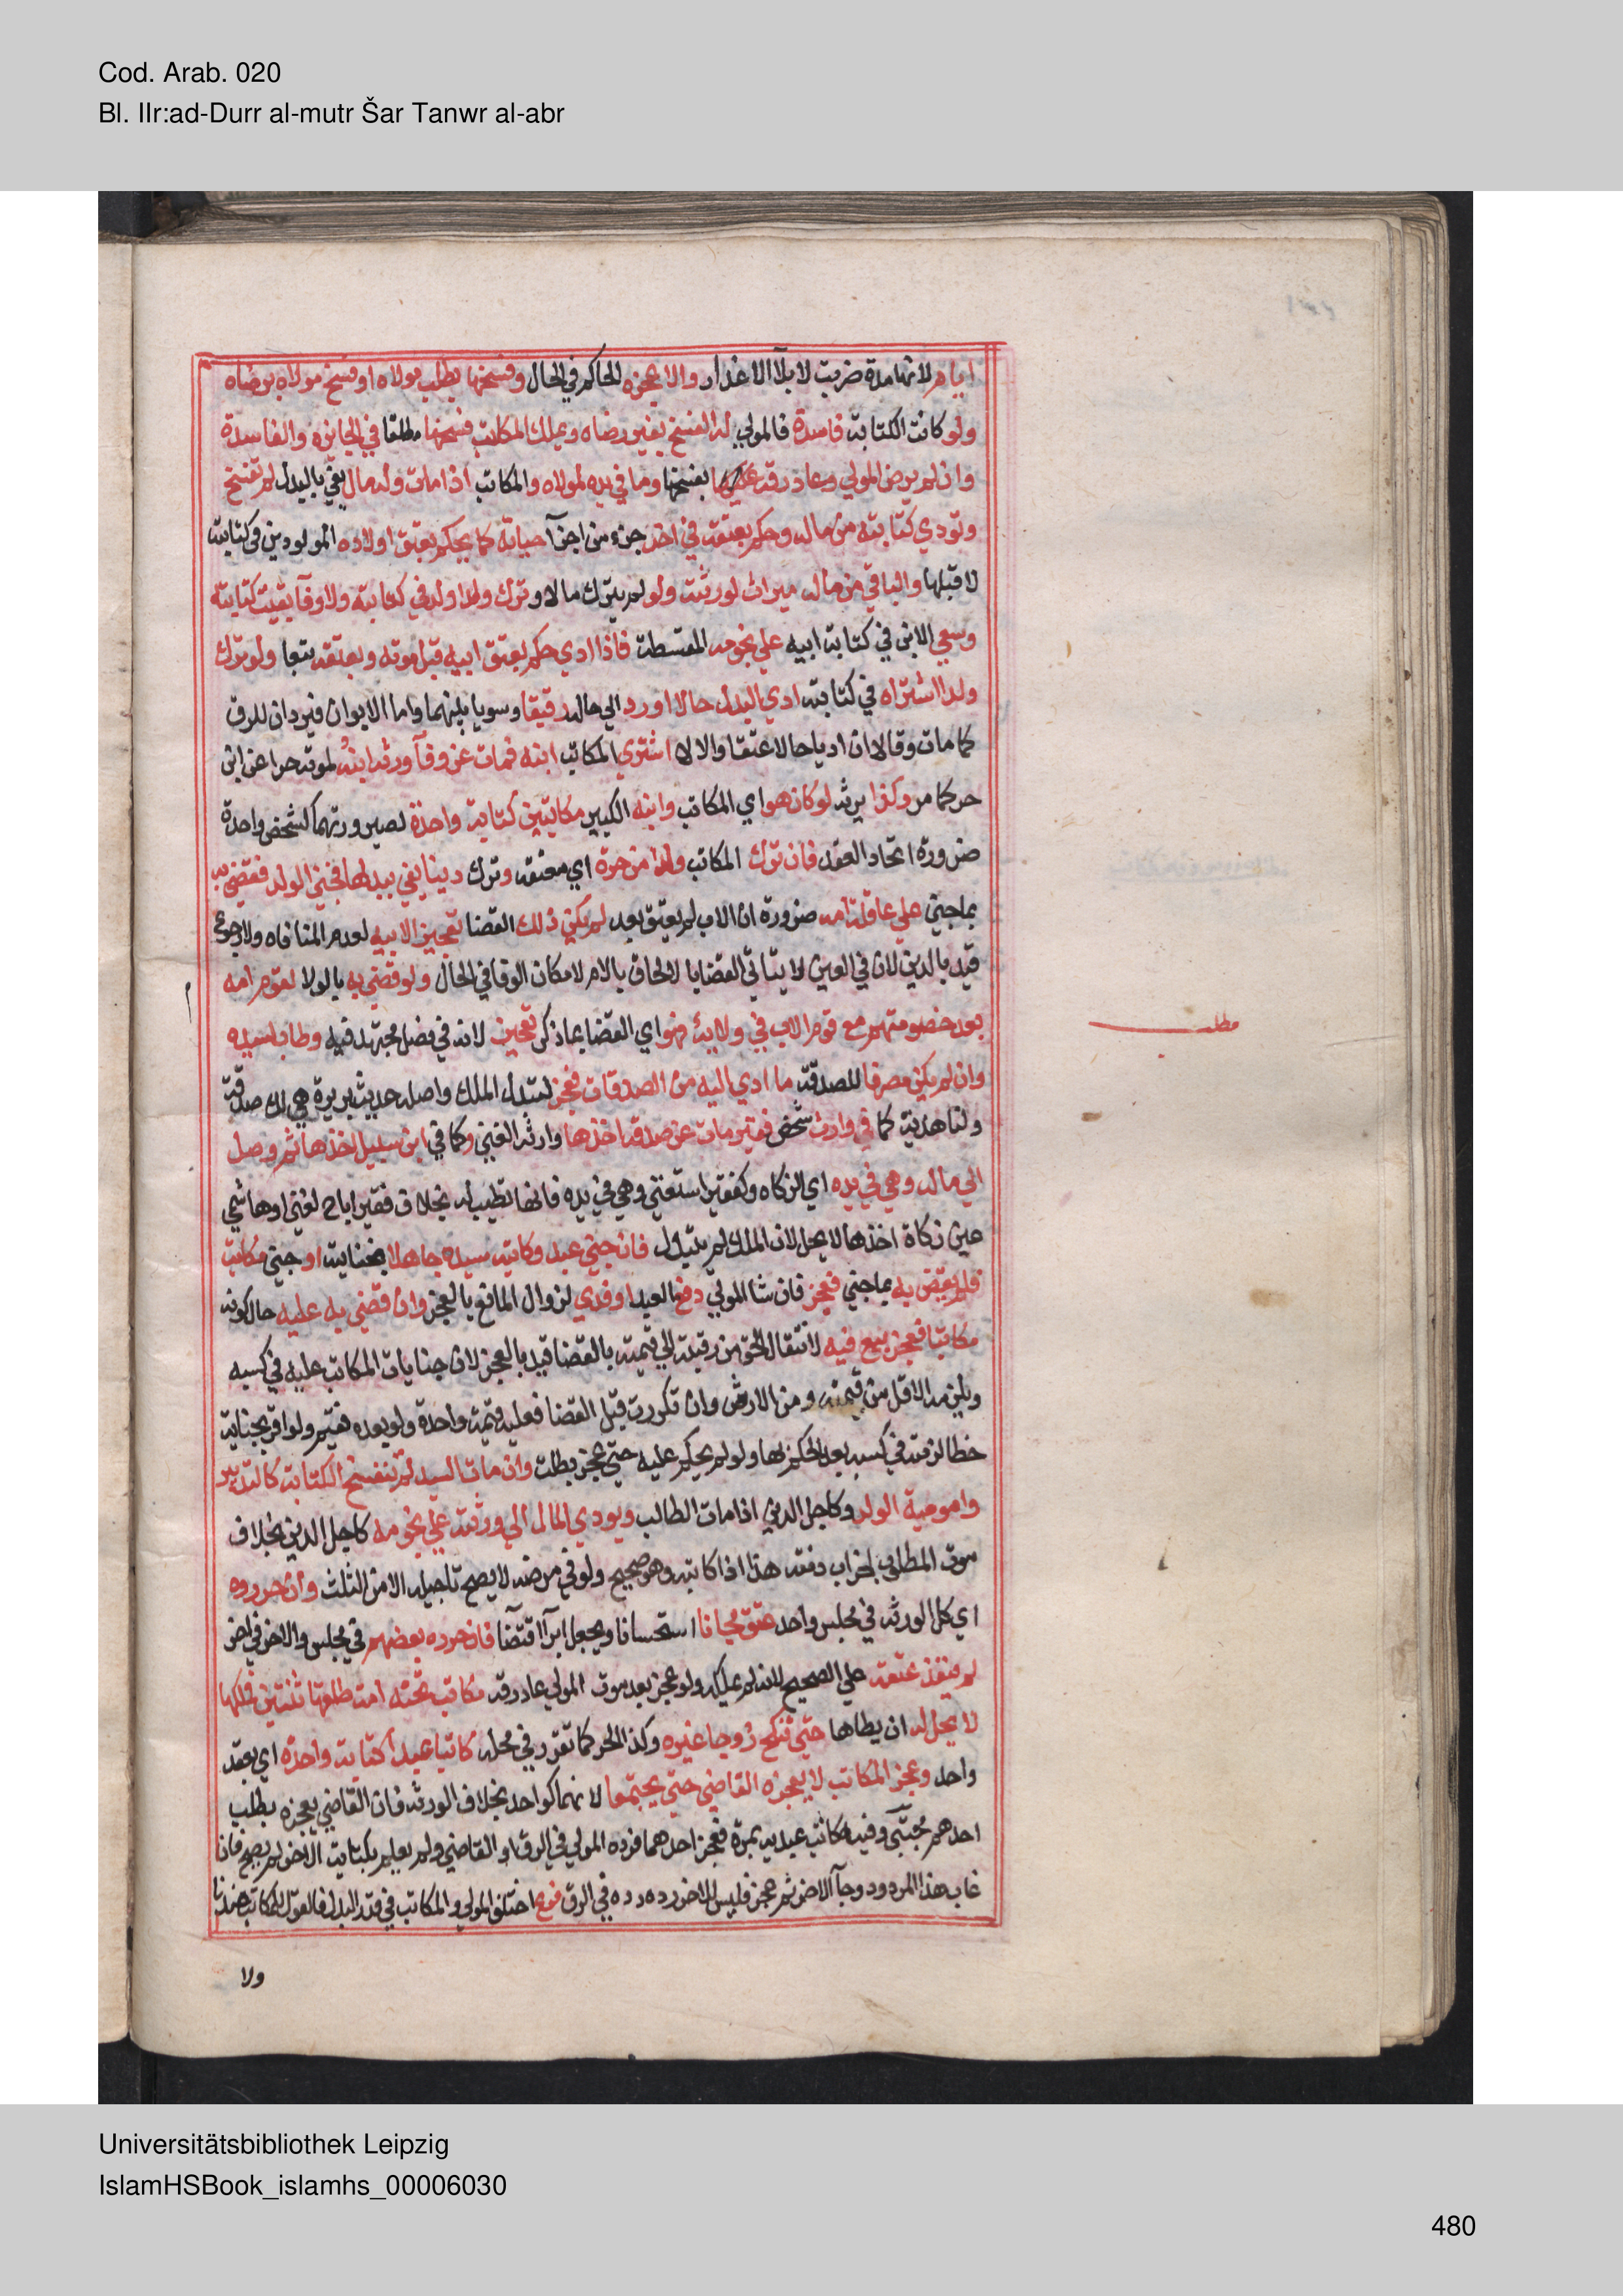 Cod. Arab. 020
Bl. IIr:ad-Durr al-mutr Šar Tanwr al-abr
ايام لانها مدة ضربت لابلآ الاعذار والا عجزه الحاكم في الحال وفسخها بطلب مولاه او فسخ مولاه برضاه
ولو كانت الكتابة فاسدة فالمولي له الفسخ بغير رضاه ويملك المكاتب فسخها مطلقا في الجايزه والفاسدة
وان لم يرض المولي وعاد رقه بفسخها وما في يده لمولاه والمكاتب اذا مات وله مال يفي بالبدل لم تفسخ
وتودي كتابته من ماله وحكم بعتقه في اخر جزء من اجزآ حياته كما يحكم بعتق اولاده المولودين في كتابته
لا قبلها والباقي من ماله ميراث لورثته ولو لم يترك مالا وترك ولدا ولد في كتابته ولا وفآ بقيت كتابته
وسعي الابن في كتابة ابيه علي نجومه المقسطة فاذا ادي حكم بعتق ابيه قبل موته وبعتقه تبعا ولو ترك
ولدا اشتراه في كتابته ادي البدل حالا او رد الي حاله رقيقا وسويا بينهما واما الابوان فيردان للرق
كما مات وقالا ان اديا حالا عتقا والا لا اشتري المكاتب ابنه فمات عن وفآ ورثه ابنه لموته حرا عن ابن
حر كما مر وكذا يرثه لو كان هو اي المكاتب وابنه الكبير مكاتبين كتابة واحدة لصيرورتهما كشخص واحدة
ضرورة اتحاد العقد فان ترك المكاتب ولدا من حرة اي معتقه وترك دينا يفي ببدلها فجني الولد فقضي به
بما جني علي عاقلة امه ضرورة ان الاب لم يعتق بعد لم يكن ذلك القضا تعجيزا لابيه لعدم المنافاه ولا رجوع
قيد بالدين لان في العين لا يتاتي القضايا لالحاق بالام لامكان الوفا في الحال ولو قضي به بالولا لقوم امه
بعد خصومتهم مع قوم الاب في ولايه فهو اي القضا بما ذكر تعجيز لانه في فصل مجتهد فيه وطاب لسيده
وان لم يكن مصرفا للصدقة ما ادي اليه من الصدقات فعجز لتبدل الملك واصله حديث بريرة هي لك صدقة
ولنا هدية كما في وارث شخص فقير مات عن صدقة اخذها وارثه الغني وكما في ابن سبيل اخذها ثم وصل
الي ماله وهي في يده اي الزكاه وكفقير استغني وهي في يده فانها تطيب له بخلاف فقير اباح لغني او هاشمي
عين زكاة اخذها لا يحل لان الملك لم يتبدل فان جني عبد وكاتبه سيده جاهلا بجنايته او جني مكاتب
فلم يقض به بما جني فعجز فان شا المولي دفع العبد او فدي لزوال المانع بالعجز وان قضي به عليه حال كونه
مكاتبا فعجز بيع فيه لانتقال الحق من رقبته الي قيمته بالقضا قيد بالعجز لان جنايات المكاتب عليه في كسبه
ويلزمه الاقل من قيمته ومن الارش وان تكررت قبل القضا فعليه قيمة واحدة ولو بعده فقيم ولو اقر بجناية
خطا لزمته في كسبه بعد الحكم بها ولو لم يحكم عليه حتي عجز بطلت وان مات السيد لم تنفسخ الكتابة كالتدبير
وامومية الولد وكاجل الدين اذا مات الطالب ويودي المال الي ورثته علي نجومه كاجل الدين بخلاف
موت المطلوب لخراب ذمته هذا اذا كاتبه وهو صحيح ولو في مرضه لا يصح تاجيله الا من الثلث وان حرروه
اي كل الورثه في مجلس واحد عتق مجانا استحسانا ويجعل ابرآ اقتضآ فان حرره بعضهم في مجلس والاخر في اخر
لم ينفذ عتقه علي الصحيح لانه لم يملكه ولو عجز بعد موت المولي عاد رقه مكاتب تحته امة طلقها ثنتين فملكها
لا يحل له ان يطاها حتي تنكح زوجا غيره وكذا الحر كما تقرر في محله كاتبا عبدا كتابة واحدة اي بعقد
واحد وعجز المكاتب لا يعجزه القاضي حتي يجتمعا لانهما كواحد بخلاف الورثه فان القاضي يعجزه بطلب
احدهم مجتبي وفيه كاتب عبديه بمرة فعجز احدهما فرده المولي في الرق او القاضي ولم يعلم بكتابة الاخر لم يصح فان
غاب هذا المردود وجآ الاخر ثم عجز فليس للاخر رده في الرق فرع اختلف المولي والمكاتب في قدر البدل فالقول للمكاتب عندنا
مطلب
ولا
Universitätsbibliothek Leipzig
IslamHSBook_islamhs_00006030
480